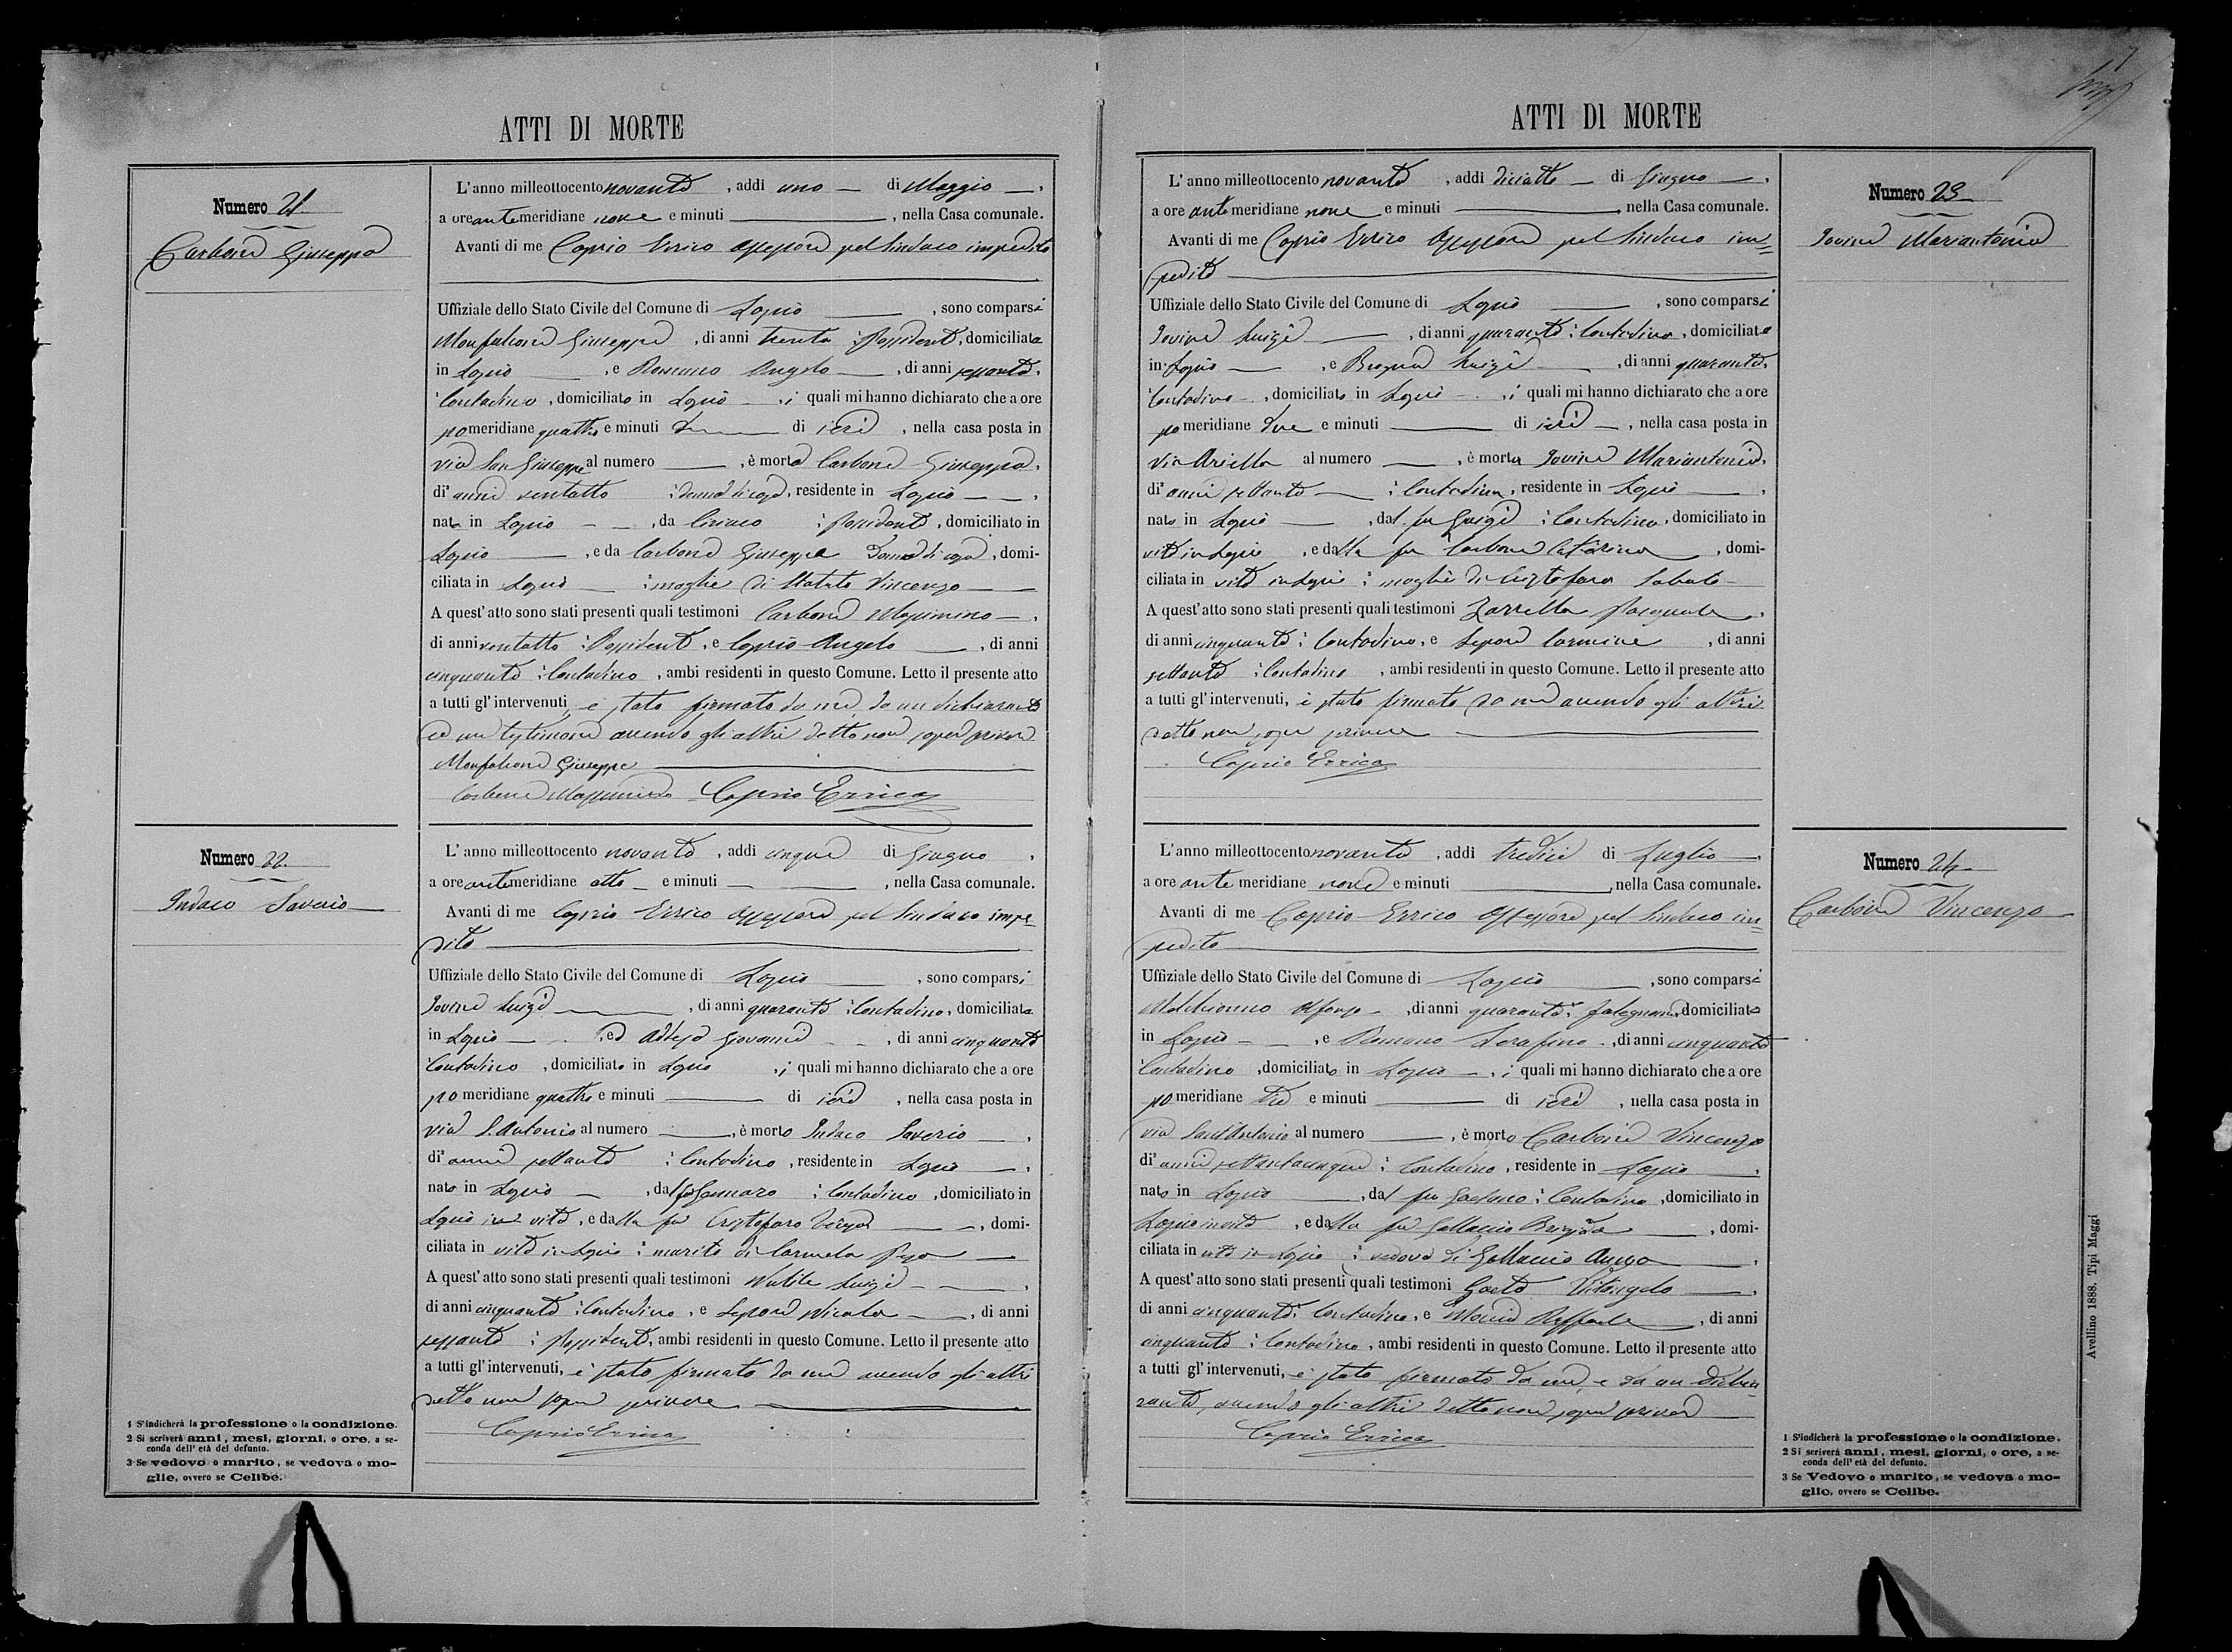 ATTI DI MORTE
Numero 21
Carbone Giuseppa
L'anno milleottocento novanta, addì uno di Maggio,
a ore antemeridiane nove e minuti , nella Casa comunale.
Avanti di me Caprio Errico Assessore pel Sindaco impedito
Uffiziale dello Stato Civile del Comune di Lapio, sono comparsi
Monfalcone Giuseppe, di anni trenta Possidente, domiciliato
in Lapio, e Romano Angelo, di anni sessanta,
Contadino, domiciliato in Lapio, i quali mi hanno dichiarato che a ore
pomeridiane quattro e minuti di ieri, nella casa posta in
via San Giuseppe al numero , è morta Carbone Giuseppa,
di anni ventotto donna di casa, residente in Lapio,
nata in Lapio, da Ciriaco Possidente, domiciliato in
Lapio, e da Carbone Giuseppa donna di casa, domi-
ciliata in Lapio moglie di Vincenzo
A quest'atto sono stati presenti quali testimoni Carbone Massimino,
di anni ventotto Possidente, e Caprio Angelo, di anni
cinquanta Contadino, ambi residenti in questo Comune. Letto il presente atto
a tutti gl'intervenuti, è stato firmato da me, da un dichiarante
ed un testimone avendo gli altri detto non saper scrivere
Monfalcone Giuseppe
Carbone Massimino Caprio Errico
Numero 22
Indaco Saverio
L'anno milleottocento novanta, addì cinque di Giugno,
a ore antemeridiane otto e minuti , nella Casa comunale.
Avanti di me Caprio Errico Assessore pel Sindaco impe-
dito
Uffiziale dello Stato Civile del Comune di Lapio, sono comparsi
Iovine Luigi, di anni quaranta Contadino, domiciliato
in Lapio, ed Giovanni, di anni cinquanta
Contadino, domiciliato in Lapio, i quali mi hanno dichiarato che a ore
pomeridiane quattro e minuti di ieri, nella casa posta in
via S. Antonio al numero , è morto Indaco Saverio,
di anni settanta Contadino, residente in Lapio,
nato in Lapio, dal fu Gennaro Contadino, domiciliato in
Lapio in vita, e dalla fu Cristofaro, domi-
ciliata in vita in Lapio marito di Carmela
A quest'atto sono stati presenti quali testimoni Luigi,
di anni cinquanta Contadino, e Lepore Nicola, di anni
sessanta Possidente, ambi residenti in questo Comune. Letto il presente atto
a tutti gl'intervenuti, è stato firmato da me avendo gli altri
detto non saper scrivere
Caprio Errico
1 S'indicherà la professione o la condizione.
2 Si scriverà anni, mesi, giorni, o ore, a se-
conda dell' età del defunto.
3 Se vedovo o marito, se vedova o mo-
glie, ovvero se Celibe.
ATTI DI MORTE
Numero 23
Iovine Mariantonia
L'anno milleottocento novanta, addì diciotto di Giugno,
a ore antemeridiane nove e minuti , nella Casa comunale.
Avanti di me Caprio Errico Assessore pel Sindaco im=
pedito
Uffiziale dello Stato Civile del Comune di Lapio, sono comparsi
Iovine Luigi, di anni quaranta Contadino, domiciliato
in Lapio, e Luigi, di anni quaranta,
Contadino, domiciliato in Lapio, i quali mi hanno dichiarato che a ore
pomeridiane due e minuti di ieri, nella casa posta in
via Ariella al numero , è morta Iovine Mariantonia,
di anni settanta Contadina, residente in Lapio,
nata in Lapio, dal fu Luigi Contadino, domiciliato in
vita in Lapio, e dalla fu Carbone Catarina, domi-
ciliata in vita in Lapio moglie di Cristofaro Sabato
A quest'atto sono stati presenti quali testimoni Zarrella Pasquale,
di anni cinquanta Contadino, e Lepore Carmine, di anni
settanta Contadino, ambi residenti in questo Comune. Letto il presente atto
a tutti gl'intervenuti, è stato firmato da me avendo gli altri
detto non saper scrivere
Caprio Errico
Numero 24
Carbone Vincenzo
L'anno milleottocento novanta, addì tredici di Luglio,
a ore antemeridiane nove e minuti , nella Casa comunale.
Avanti di me Caprio Errico Assessore pel Sindaco im=
pedito
Uffiziale dello Stato Civile del Comune di Lapio, sono comparsi
Alfonso, di anni quaranta falegname, domiciliato
in Lapio, e Romano Serafino, di anni cinquanta
Contadino, domiciliato in Lapio, i quali mi hanno dichiarato che a ore
pomeridiane tre e minuti di ieri, nella casa posta in
via Sant'Antonio al numero , è morto Carbone Vincenzo
di anni settantacinque Contadino, residente in Lapio,
nato in Lapio, dal fu Gaetano Contadino, domiciliato in
Lapio in vita, e dalla fu Brigida, domi-
ciliata in vita in Lapio vedovo di
A quest'atto sono stati presenti quali testimoni Gaeta Vitangelo,
di anni cinquanta Contadino, e Raffaele, di anni
cinquanta Contadino, ambi residenti in questo Comune. Letto il presente atto
a tutti gl'intervenuti, è stato firmato da me, e da un dichia-
rante, avendo gli altri detto non saper scrivere
Caprio Errico
1 S'indicherà la professione o la condizione.
2 Si scriverà anni, mesi, giorni, o ore, a se-
conda dell' età del defunto.
3 Se Vedovo o marito, se vedova o mo-
glie, ovvero se Celibe.
Avellino 1888. Tipi Maggi